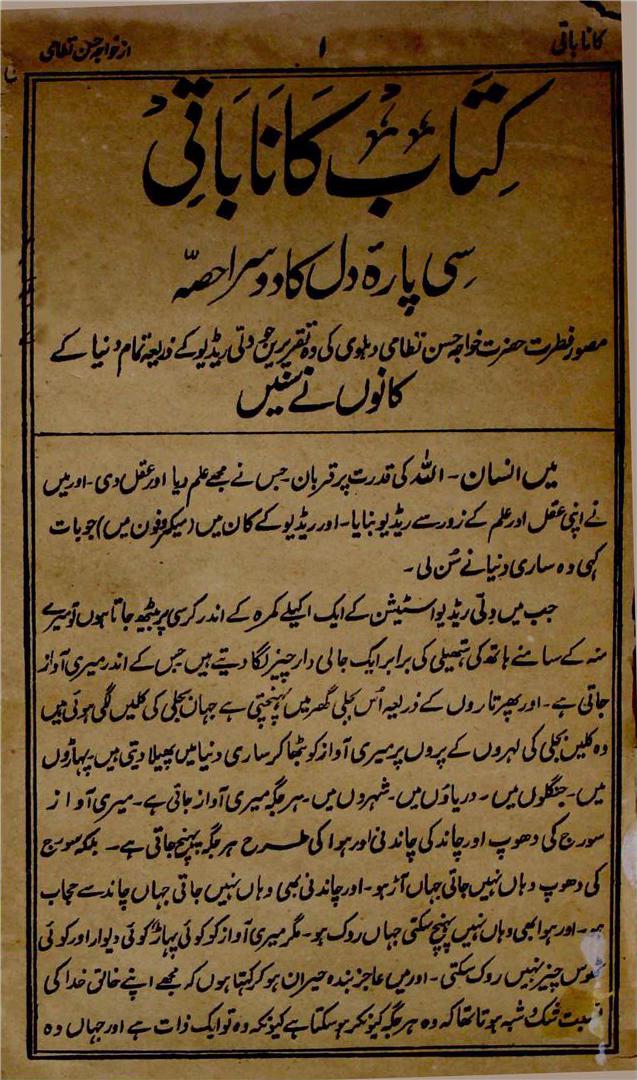 کانا باتی
۱
از خواجہ حسن نظامی
کِتَابْ کَانَا بَاتِی
سِی پارۂ دل کا دوسرا حصّہ
مصور فطرت حضرت خواجہ حسن نظامی دہلوی کی وہ تقریریں جو دلی ریڈیو کے ذریعہ تمام دنیا کے
کانوں نے سنیں
میں انسان - اللہ کی قدرت پر قربان - جس نے مجھے علم دیا اور عقل دی - اور میں
نے اپنی عقل اور علم کے زور سے ریڈیو بنایا - اور ریڈیو کے کان میں (میکروفون میں) جو بات
کہی وہ ساری دنیا نے سُن لی -
جب میں دلی ریڈیو اسٹیشن کے ایک اکیلے کمرہ کے اندر کرسی پر بیٹھ جاتا ہوں تو میرے
منہ کے سامنے ہاتھ کی ہتھیلی کی برابر ایک جالی دار چیز لگا دیتے ہیں جس کے اندر میری آواز
جاتی ہے - اور پھر تاروں کے ذریعہ اُس بجلی گھر میں پہنچتی ہے جہاں بجلی کی کلیں لگی ہوئی ہیں
وہ کلیں بجلی کی لہروں کے پروں پر میری آواز کو بٹھا کر ساری دنیا میں پھیلا دیتی ہیں - پہاڑوں
میں - جنگلوں میں - دریاؤں میں - شہروں میں - ہر جگہ میری آواز جاتی ہے - میری آواز
سورج کی دھوپ اور چاند کی چاندنی اور ہوا کی طرح ہر جگہ پہنچ جاتی ہے - بلکہ سورج
کی دھوپ وہاں نہیں جاتی جہاں آڑ ہو - اور چاندنی بھی وہاں نہیں جاتی جہاں چاند سے حجاب
ہو - اور ہوا بھی وہاں نہیں پہنچ سکتی جہاں روک ہو - مگر میری آواز کو کوئی پہاڑ کوئی دیوار اور کوئی
ٹھوس چیز نہیں روک سکتی - اور میں عاجز بندہ حیران ہو کر کہتا ہوں کہ مجھے اپنے خالق خدا کی
نسبت شک و شبہ ہوتا تھا کہ وہ ہر جگہ کیونکر ہو سکتا ہے کیونکہ وہ تو ایک ذات ہے اور جہاں وہ